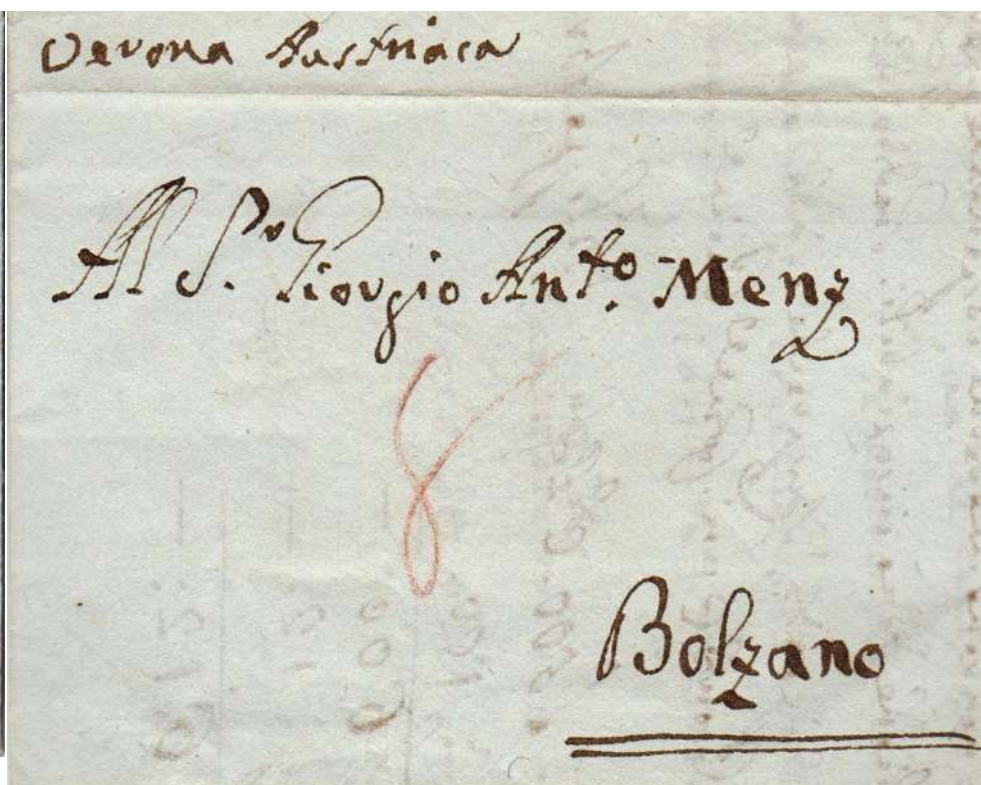 Verona Austriaca
Al S.r Giorgio Ant.o Menz
8
Bolzano